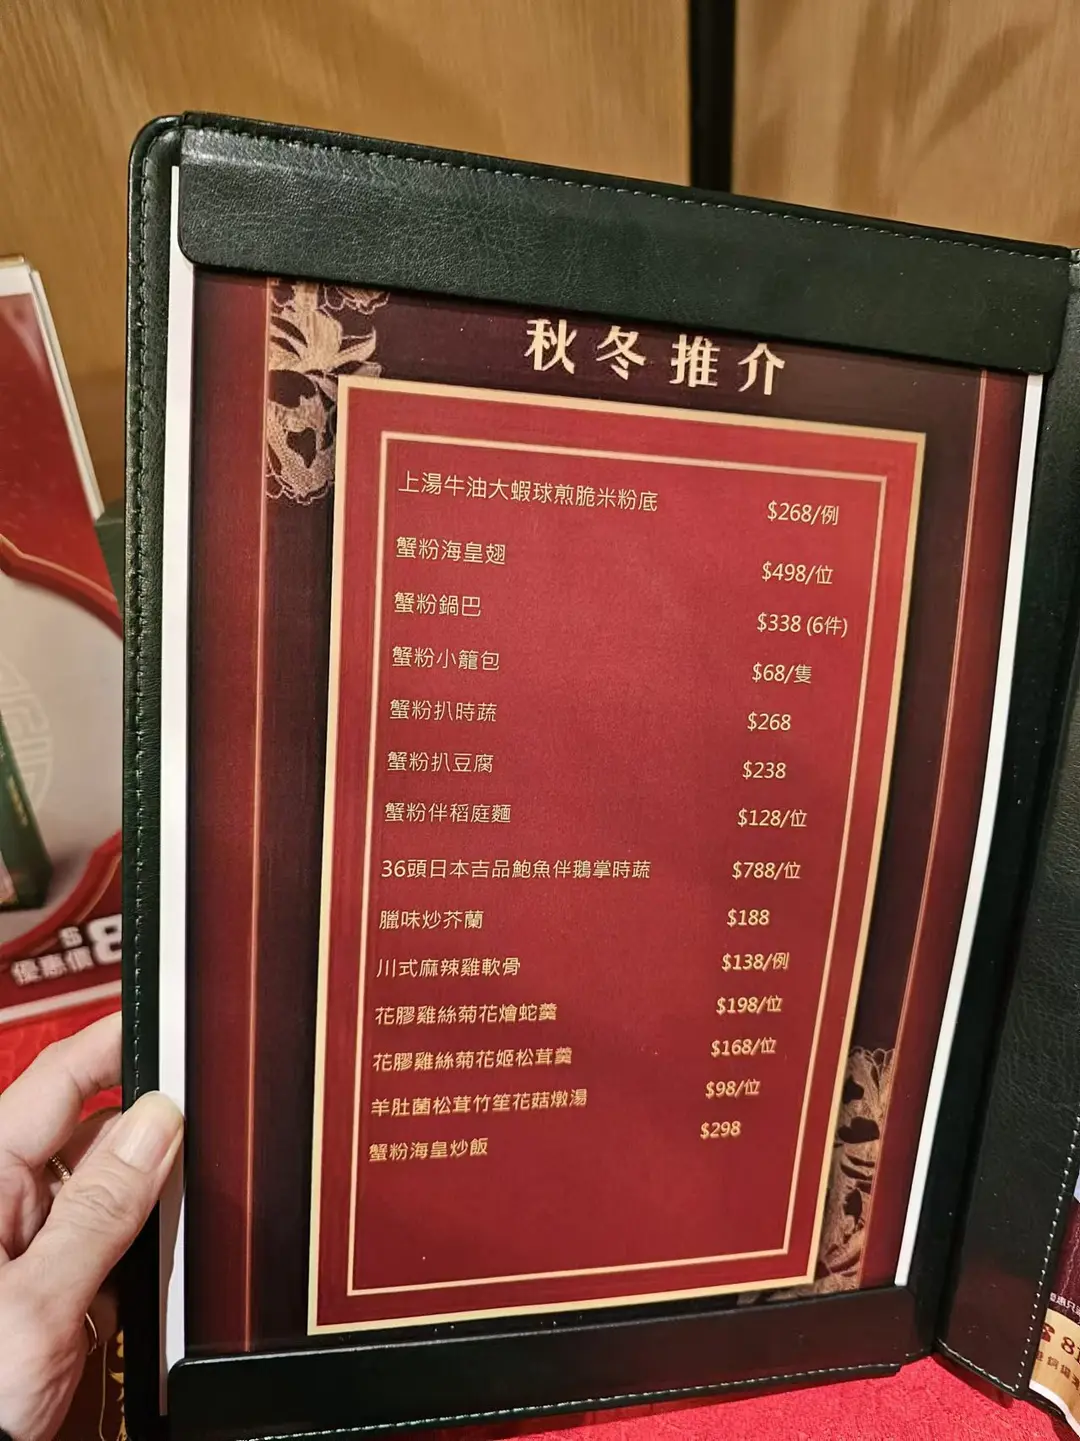 秋冬推介
上湯牛油大蝦球煎脆米粉底 $268/例
蟹粉海皇翅 $498/位
蟹粉鍋巴 $338 (6件)
蟹粉小籠包 $68/隻
蟹粉扒時蔬 $268
蟹粉扒豆腐 $238
蟹粉伴稻庭麵 $128/位
36頭日本吉品鮑魚伴鵝掌時蔬 $788/位
臘味炒芥蘭 $188
川式麻辣雞軟骨 $138/例
花膠雞絲菊花燴蛇羹 $198/位
花膠雞絲菊花姬松茸羹 $168/位
羊肚菌松茸竹笙花菇燉湯 $98/位
蟹粉海皇炒飯 $298
優惠價
$8